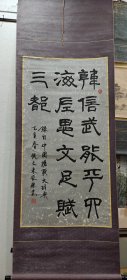 韓信武能平四
海左思文足賦
三都
錄自中國楹聯大辭典